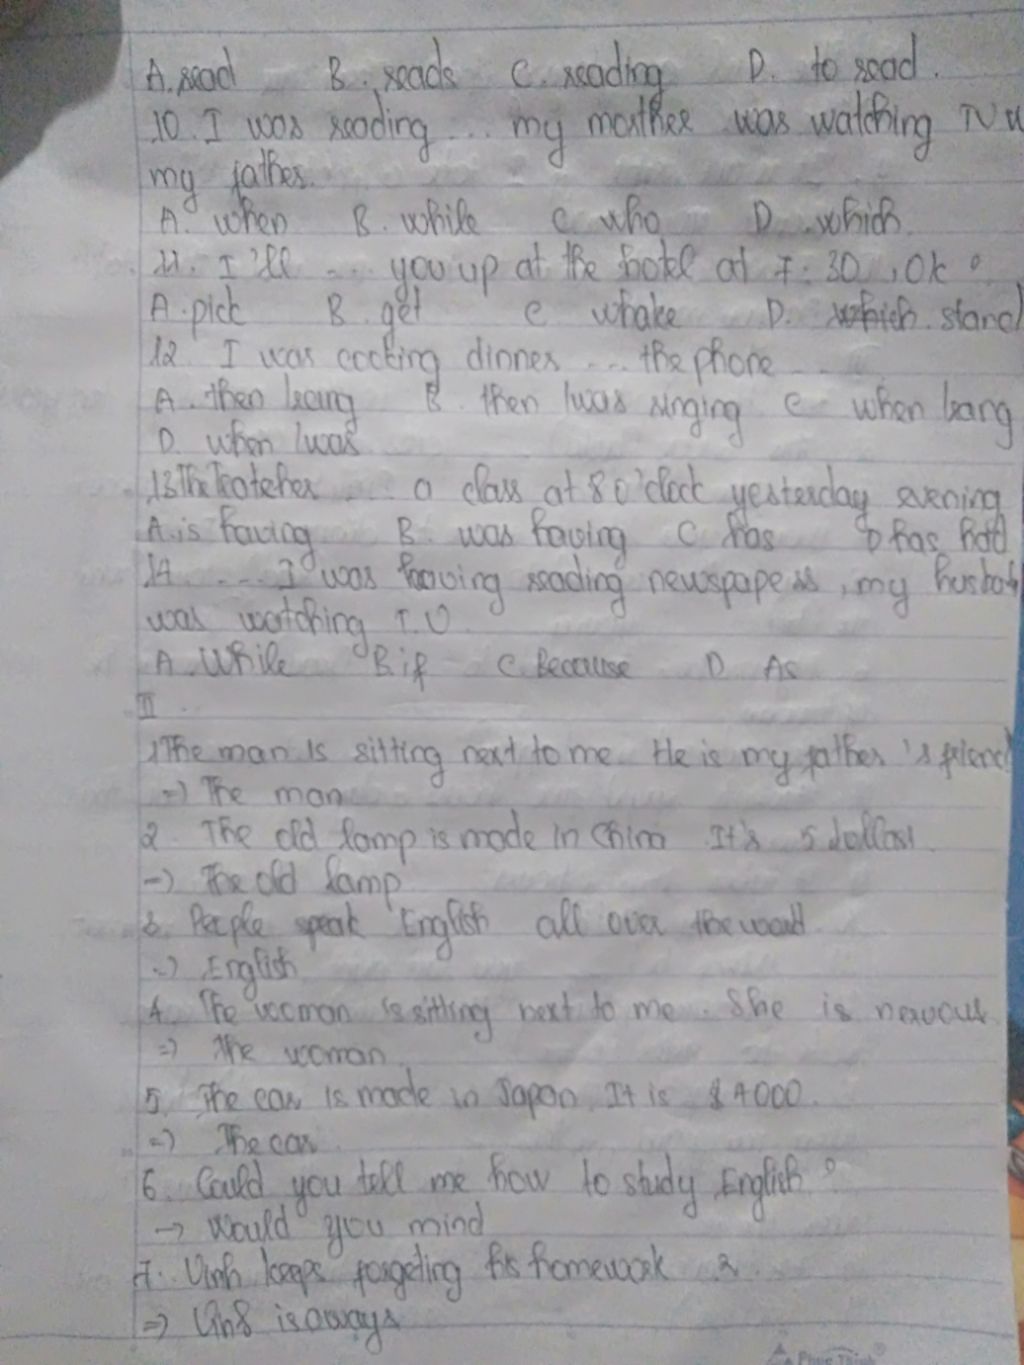 A. read B. reads C. reading D. to read.
10. I was reading ... my morther was watching TV
my father.
A. when B. while C who D. which.
11. I'll ... you up at the hotel at 7:30, Ok ?
A. pick B. get C whake D. which. stand
12. I was cooking dinner ... the phone ...
A. then rang B. then was ringing C when rang
D. when was
13 The Teatcher .... a class at 8 o'clock yesterday evening
A. is having B. was having C has D has had
14. .... I was having reading newspapers, my
was watching T.V
A. While B. if C. Because D As
II.
1 The man is sitting next to me He is my father 's friend
=) The man
2. The old lamp is made in China It's 5 dollars
-) The old lamp
3. People speak English all over the
-) English
4. The woman is sitting next to me. She is
=) The woman.
5. The car is made in Japan. It is $ 4000.
=) The car.
6. Could you tell me how to study English ?
-> Would you mind
7. Vinh keeps forgeting his homework
=) is aways